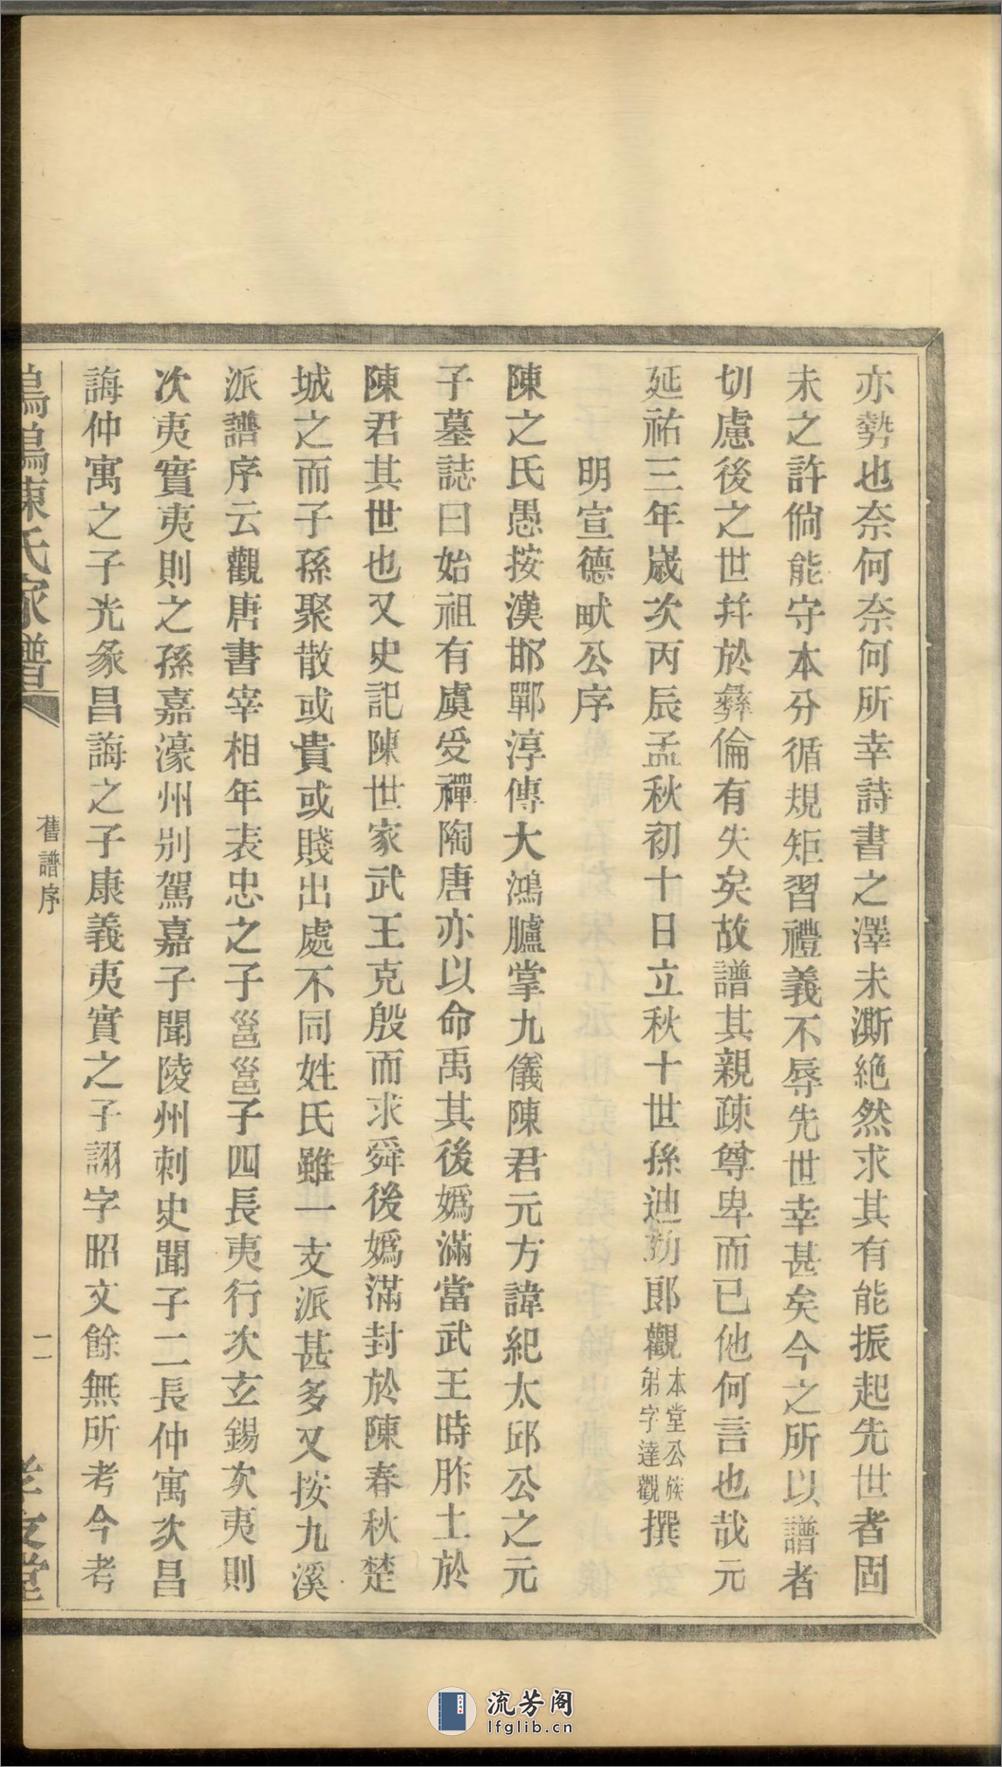 亦勢也奈何奈何所幸詩書之澤未澌絶然求其有能振起先世者固
未之許倘能守本分循規矩習禮義不辱先世幸甚矣今之所以譜者
切慮後之世并於彝倫有失矣故譜其親疎尊卑而已他何言也哉元
延祐三年歲次丙辰孟秋初十日立秋十世孫迪功郎觀本堂公族弟字達觀撰
明宣德畎公序
陳之氏愚按漢邯鄲淳傳大鴻臚掌九儀陳君元方諱紀太邱公之元
子墓誌曰始祖有虞受禪陶唐亦以命禹其後媯滿當武王時胙土於
陳君其世也又史記陳世家武王克殷而求舜後媯滿封於陳春秋楚
城之而子孫聚散或貴或賤出處不同姓氏雖一支派甚多又按九溪
派譜序云觀唐書宰相年表忠之子邕邕子四長夷行次玄錫次夷則
次夷實夷則之孫嘉濠州别駕嘉子聞陵州刺史聞子二長仲寓次昌
誨仲寓之子光彖昌誨之子康義夷實之子詡字昭文餘無所考今考
陳氏家譜
舊譜序
二
堂
流芳阁
lfglib.cn